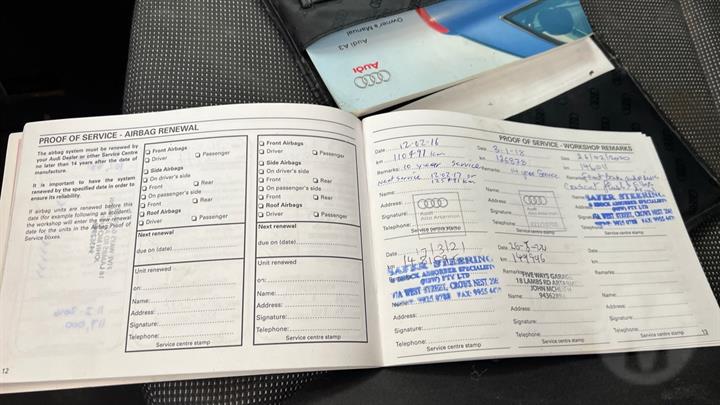 Audi
Audi A3
Owner's Manual
PROOF OF SERVICE - AIRBAG RENEWAL
The airbag system must be renewed by
your Audi Dealer or other Service Centre
no later than 14 years after the date of
manufacture.
It is important to have the system
renewed by the specified date in order to
ensure its reliability.
If airbag units are renewed before this
date (for example following an accident),
the workshop will enter the new renewal
date for the units in the Airbag Proof of
Service boxes.
Front Airbags
Driver Passenger
Side Airbags
On driver's side
Front Rear
On passenger's side
Front Rear
Roof Airbags
Driver Passenger
Next renewal
due on (date)
Unit renewed
on:
Name:
Address:
Signature:
Telephone:
Service centre stamp
Front Airbags
Driver Passenger
Side Airbags
On driver's side
Front Rear
On passenger's side
Front Rear
Roof Airbags
Driver Passenger
Next renewal
due on (date)
Unit renewed
on:
Name:
Address:
Signature:
Telephone:
Service centre stamp
12
PROOF OF SERVICE - WORKSHOP REMARKS
Date 12-02-16
km 110491 km
Remarks: 10 year service
next service 12.02.17 or
125491 km
Name:
Address:
Signature:
Telephone:
Service centre stamp
Date 3-1-18
km 126878
Name:
Address:
Signature:
Telephone:
Service centre stamp
Date 26/02/2020
km
SAFER STEERING
& SHOCK ABSORBER SPECIALIST
(NSW) PTY LTD
WEST STREET, CROWS NEST
Service centre stamp
Date 17/3/21
SAFER STEERING
& SHOCK ABSORBER SPECIALIST
(NSW) PTY LTD
WEST STREET, CROWS NEST
9925 0788 FAX: 9955
Address:
Signature:
Telephone:
Service centre stamp
Date
km 149596
Remarks:
FIVE WAYS GARAGE
18 LAMBS RD ARTARMON
Name:
Address:
Signature:
Telephone:
Service centre stamp
Date
km
Remarks:
Name:
Address:
Signature:
Telephone:
Service centre stamp
13